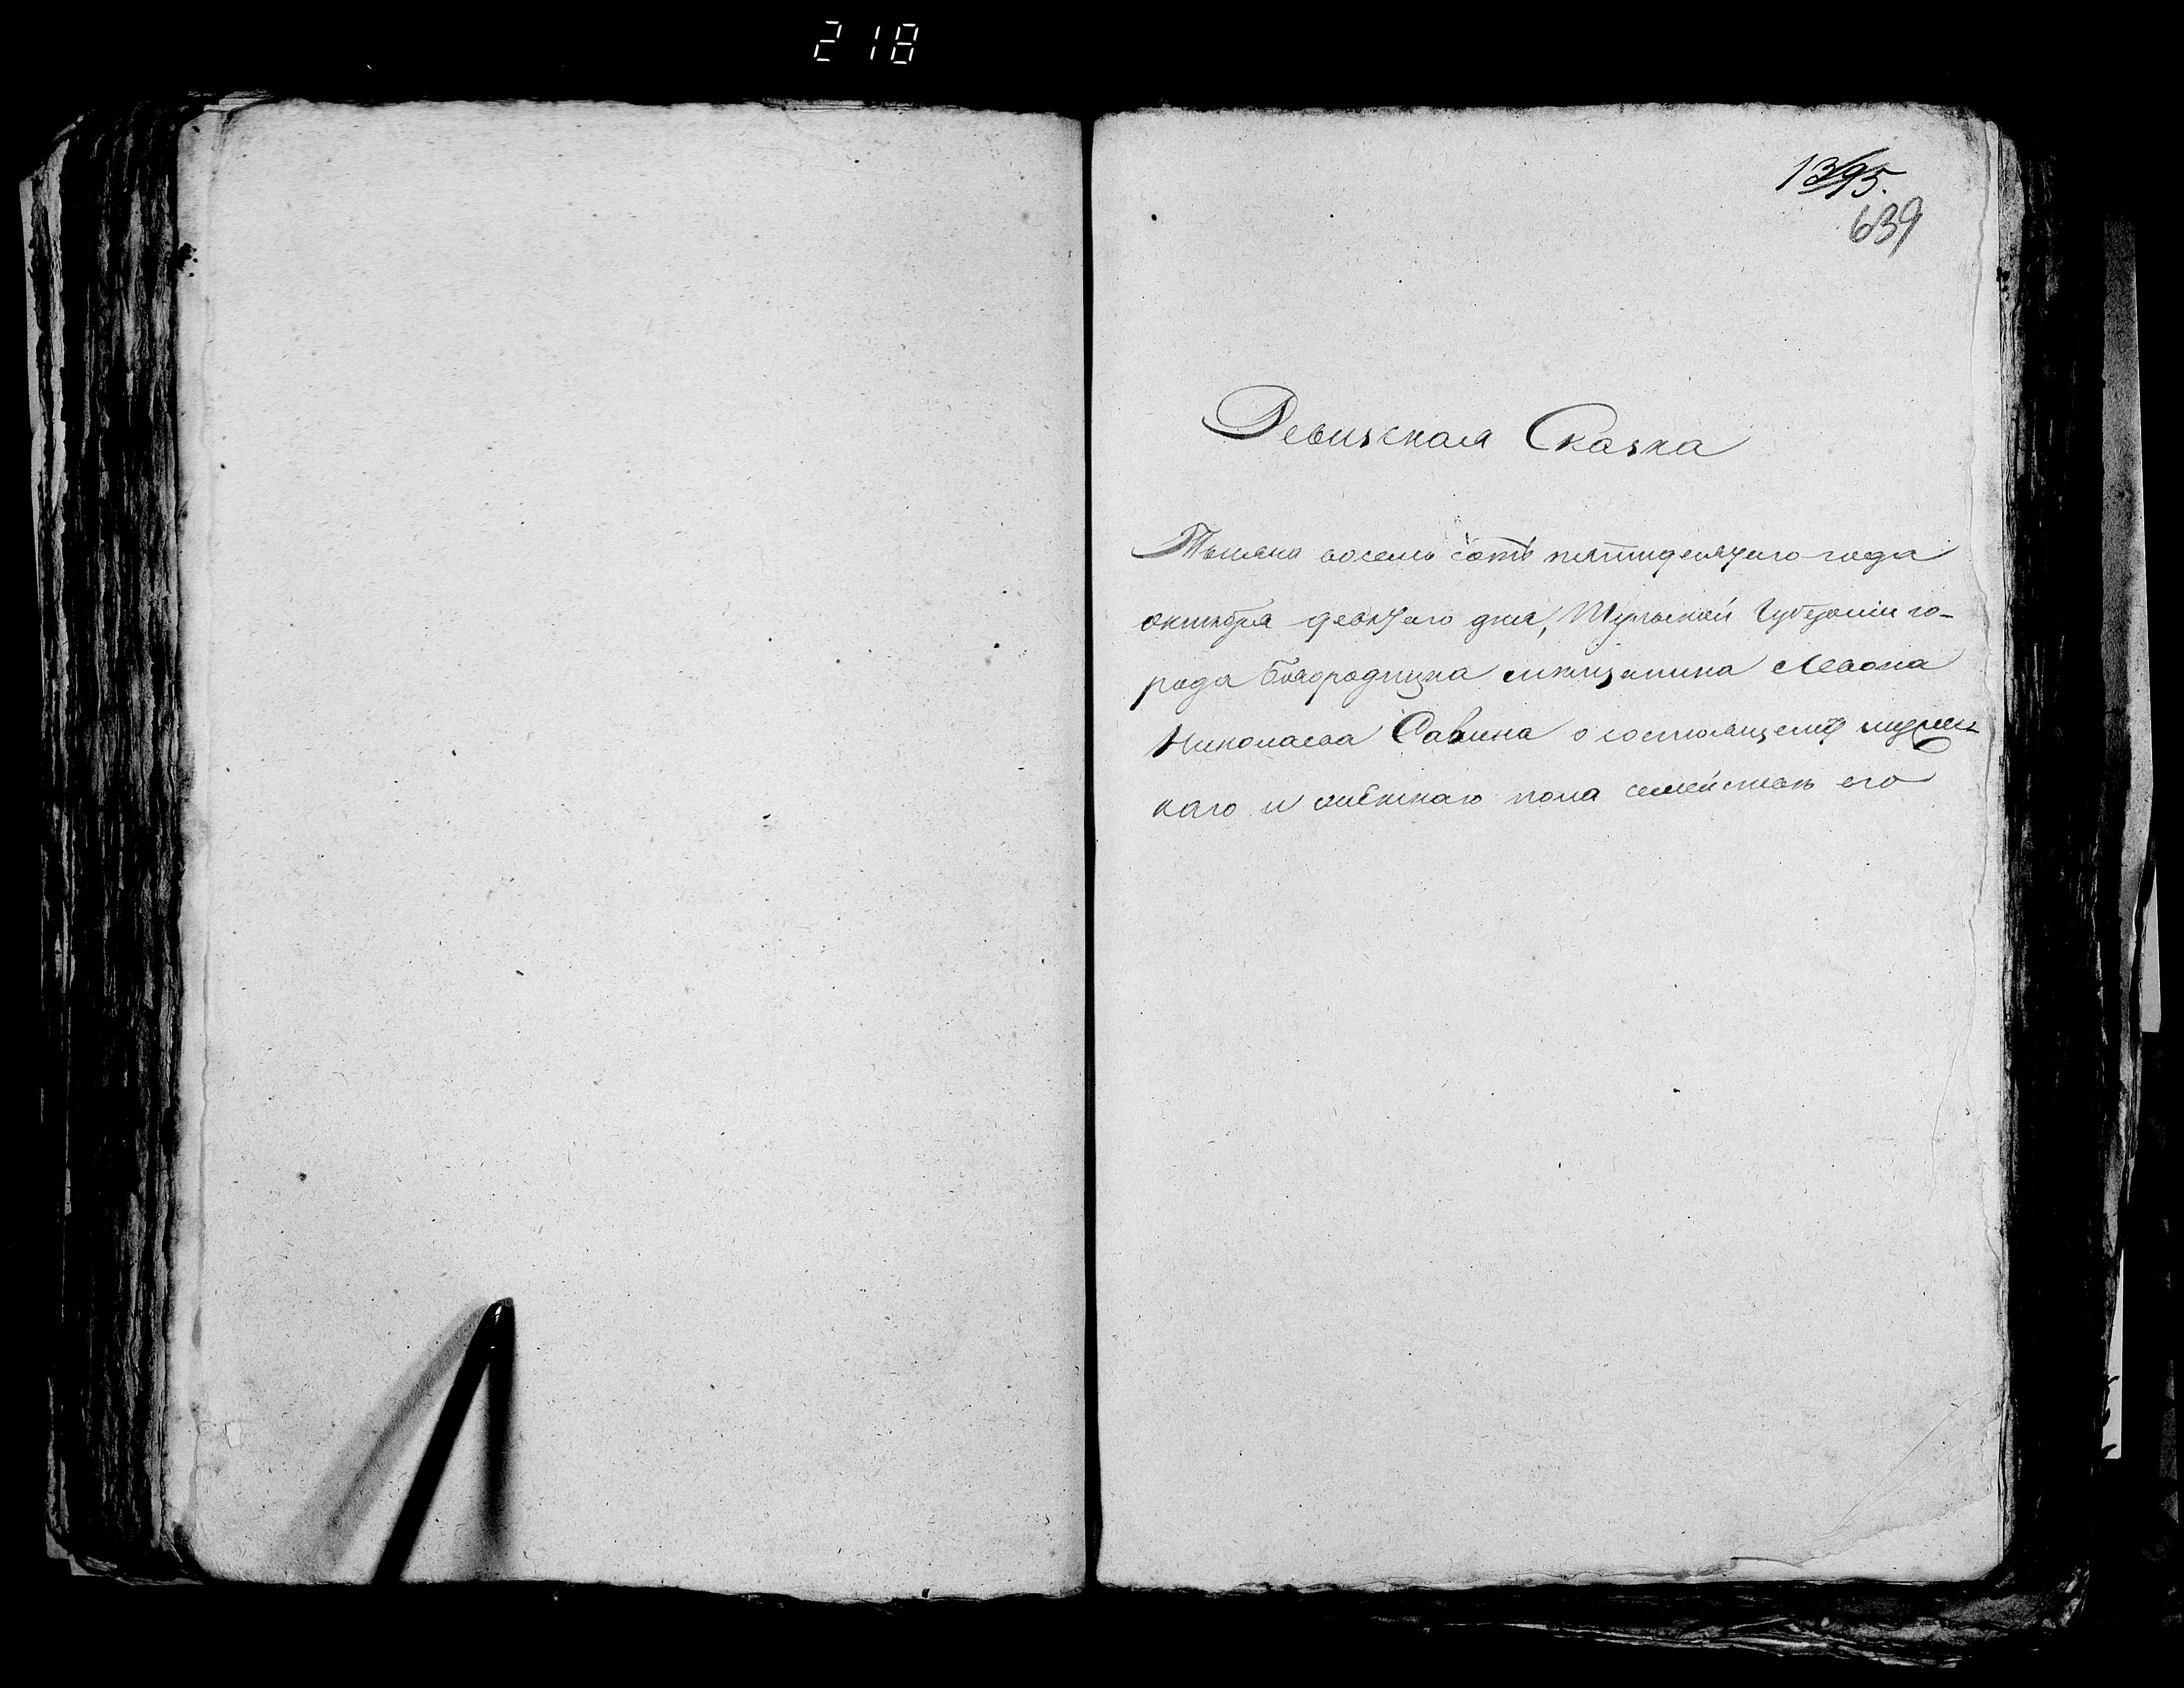 218
1395.
639
Ревизская Сказка
Тысяча восемь сотъ пятидесятаго года
октября девятаго дня, Тульской Губерніи го-
рода Богородицка мѣщанина Леона
Николаева Савина о состоящемъ мужес-
каго и женскаго пола семействѣ его